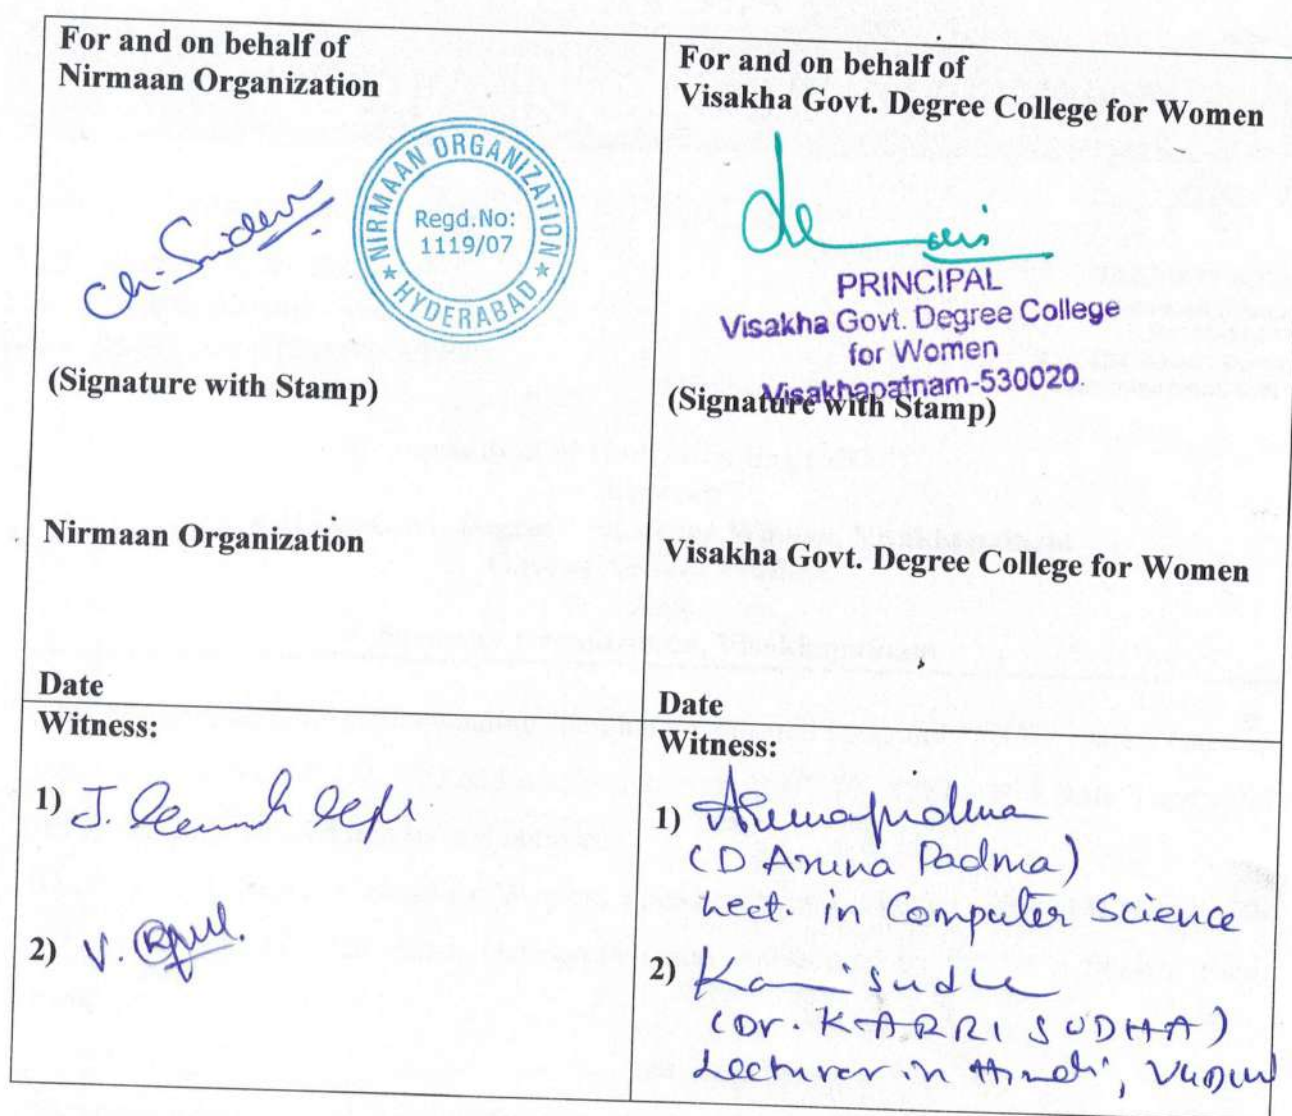 For and on behalf of
Nirmaan Organization
NIRMAAN ORGANIZATION
Regd.No:
1119/07
* HYDERABAD *
(Signature with Stamp)
Nirmaan Organization
Date
For and on behalf of
Visakha Govt. Degree College for Women
PRINCIPAL
Visakha Govt. Degree College
for Women
Visakhapatnam-530020.
(Signature with Stamp)
Visakha Govt. Degree College for Women
Date
Witness:
1) J.
2) V.
Witness:
1) Arunapadma
(D Aruna Padma)
Lect. in Computer Science
2) Karri Sudha
(Dr. KARRI SUDHA)
Lecturer in Hindi,